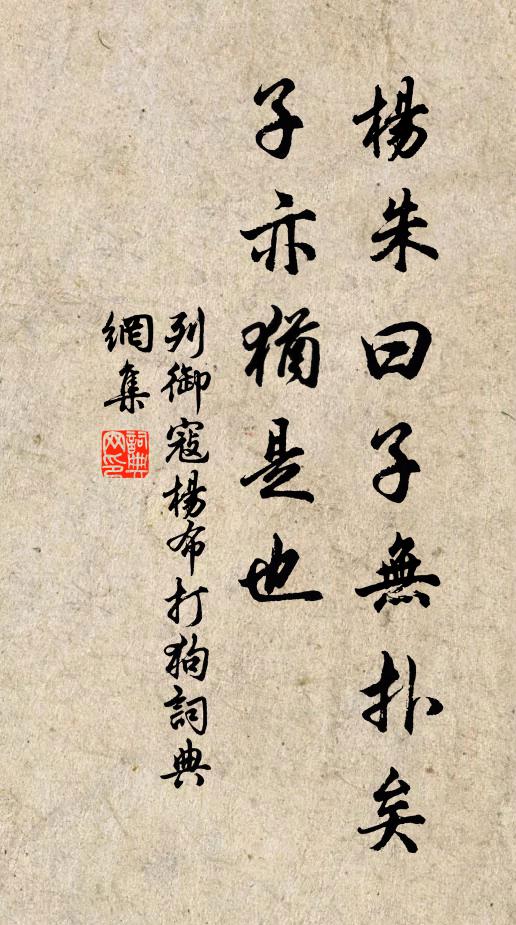 楊朱曰子無扑矣
子亦猶是也
列御寇楊布打狗詞典
網集
詞典網印